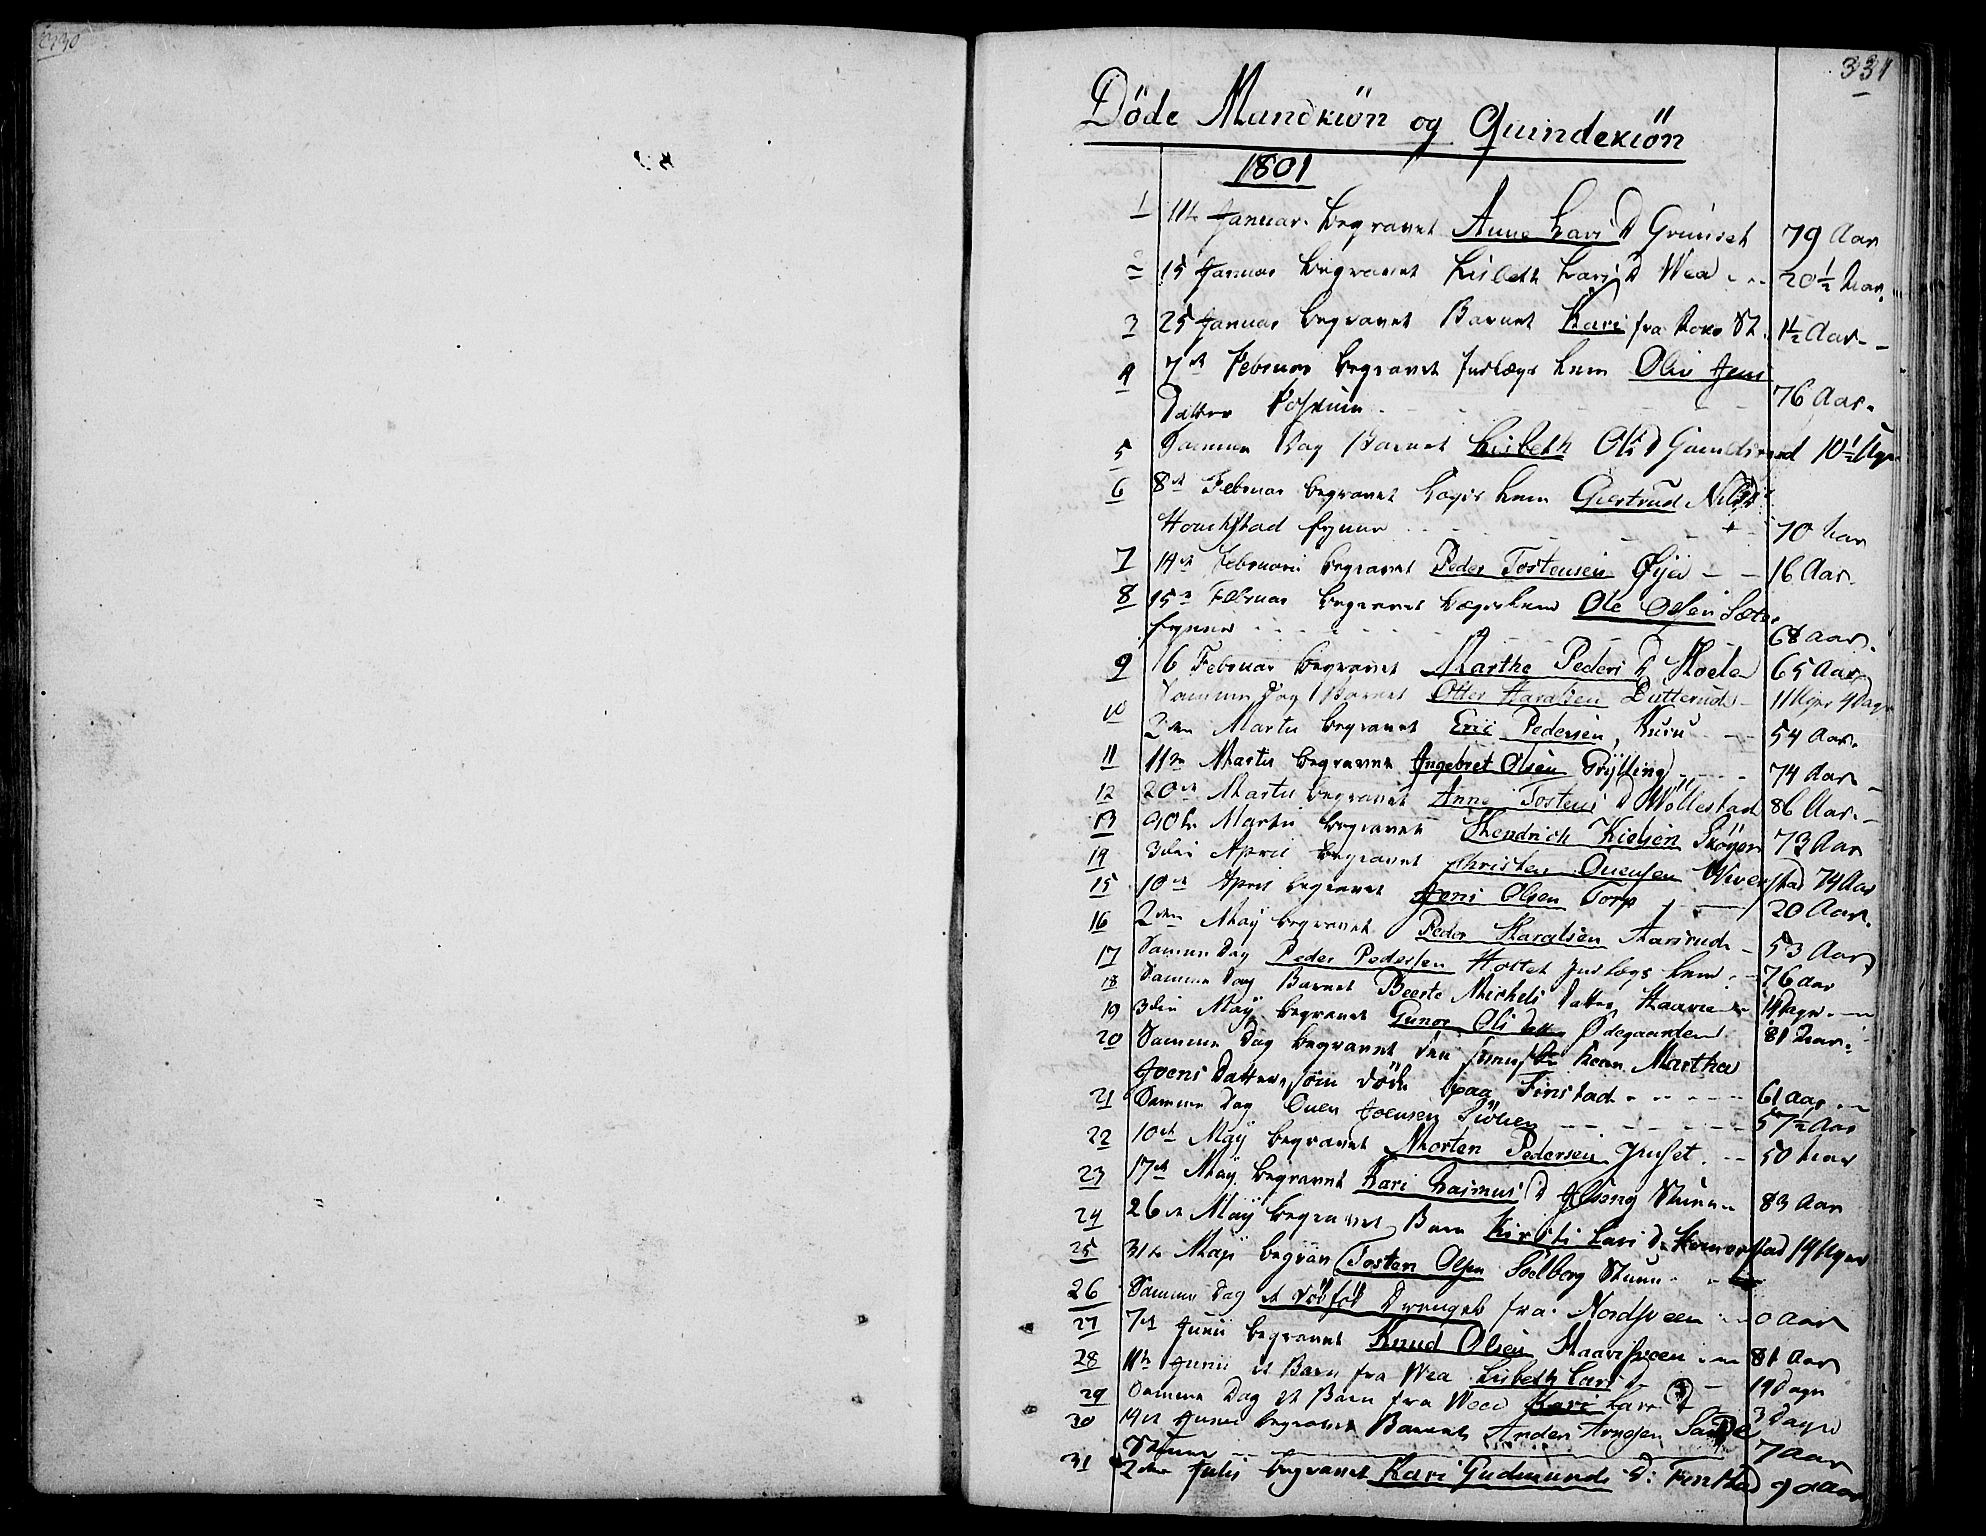 330
331
Döde Mandkiön og Quindekiön
1801
1 11te Januar. begravet Anne Lars D Grimset 79 Aar
2 15 Januar begravet Lisbeth Lars D Wea 20½ Aar.
3 25 Januar begravet Barnet Kari fra St. 1½ Aar
4 7de Februar begravet Indlægs Lem Olia Jens
Datter 76 Aar.
5 Samme Dag Barnet Lisbeth Ols D 10½ Uger
6 8de Februar begravet Lægds Lem Giertrud Nils D
70 Aar
7 14de Februarii begravet Peder Tostensen Øyer 16 Aar.
8 15de Februar begravet Lægdslem Ole Olsen Sætre
68 Aar.
9 16 Februar begravet Marthe Peders D 65 Aar
10 Samme Dag Barnet Otter Haralsen Dutterud 11 Uger 4 Dage
2den Martii begravet Eric Pedersen, 54 Aar.
11 11te Martii begravet Ingebret Olsen Grÿtting 74 Aar
12 20de Martii begravet Anne Tostens D Wöllestad 86 Aar.
13 30te Martii begravet Hendrich Nielsen Sköyen 73 Aar
14 3die April begravet Christen Quensen Wiverstad 74 Aar
15 10de April begravet Jens Olsen Torp 20 Aar.
16 2den Maÿ begravet Peder Haralsen Aasrud 53 Aar
17 Samme Dag Peder Pedersen Holtet Indlægs Lem 76 aar
18 Samme Dag Barnet Beerte Michels Datter 14 Dage
19 3die Maÿ begravet Gunor Ols Datter Ødegaarden 81 Aar.
20 Samme Dag begravet den Martha
Joens Datter, som döde paa Finstad 61 aar
21 Samme Dag Quen Joensen 57½ Aar
22 10de Maÿ begravet Morten Pedersen Juset 50 Aar
23 17de Maÿ begravet Kari Rasmus D 83 Aar
24 26de Maÿ begravet Barn Kirsti Lars D 14 Uger
25 31te Maji begrav Tosten Olsen Soelberg
26 Samme Dag et dödföd Drengeb fra Nordsveen 0 Aar
27 7de Junii begravet Knud Olsen 81 Aar
28 11te Junii et Barn fra Wea Lisbeth Lars D 14 Dage
29 Samme Dag et Barn fra Weea Kari Lars D 3 Dage
30 14de Junii begravet Barnet Anders Arnesen Sande
7 Aar
31 2den Julii begravet Kari Gudmunds D: Finstad